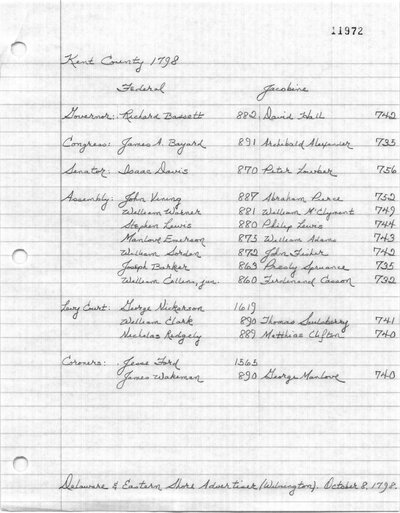 11972
Kent County 1798
Federal Jacobine
Governor: Richard Bassett 882 David Hall 742
Congress: James A. Bayard 891 Archibald Alexander 735
Senator: Isaac Davis 870 Peter Lowber 756
Assembly: John Vining 887 Abraham Pierce 752
William Warner 881 William McClyment 749
Stephen Lewis 880 Philip Lewis 744
Manlove Emerson 873 William Adams 743
William Sorden 872 John Fisher 742
Joseph Barker 863 Presly Spruance 735
William Collins, jun. 860 Ferdinand Casson 732
Levy Court: George Nickerson 1619
William Clark 890 Thomas Saulsberry 741
Nicholas Ridgely 889 Matthias Clifton 740
Coroners: Jesse Ford 1565
James Wakeman 890 George Manlove 740
Delaware & Eastern Shore Advertiser (Wilmington). October 8, 1798.